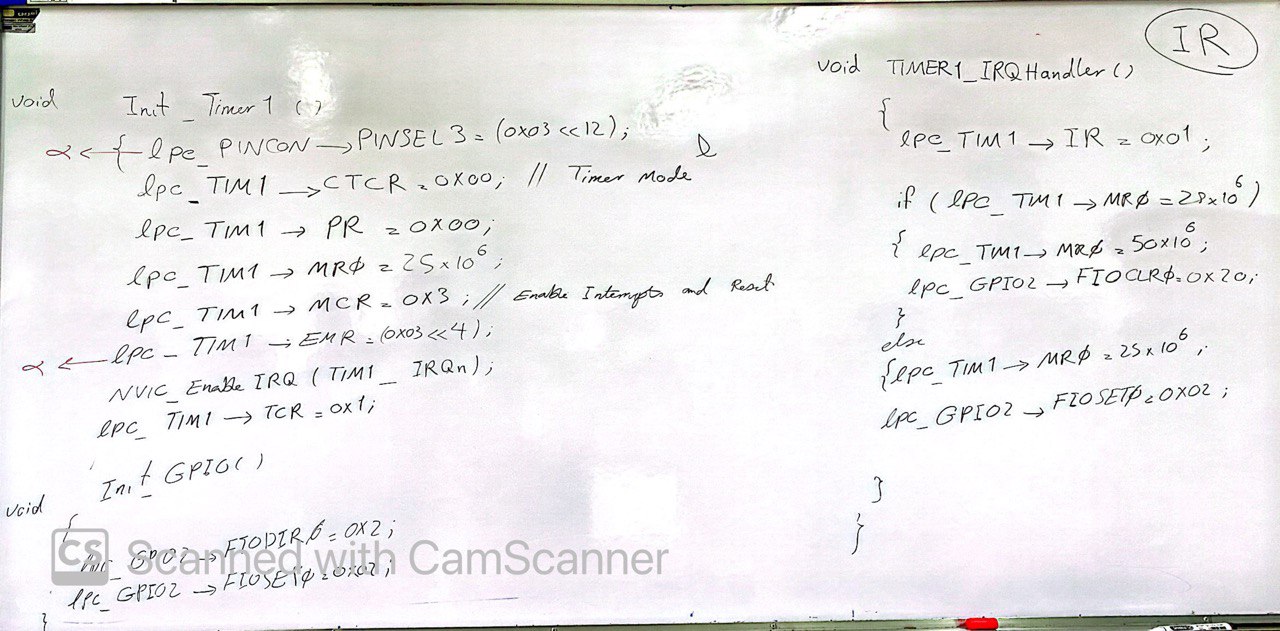 void Init_Timer1 ()
α ← { lpc_PINCON → PINSEL3 = (0x03 << 12);
l
lpc_TIM1 → CTCR = 0x00; // Timer Mode
lpc_TIM1 → PR = 0x00;
lpc_TIM1 → MRØ = 25×10⁶;
lpc_TIM1 → MCR = 0x3; // Enable Interrupts and Reset
α ← lpc_TIM1 → EMR = (0x03 << 4);
NVIC_Enable IRQ (TIM1_IRQn);
lpc_TIM1 → TCR = 0x1;
void Init_GPIO()
{
lpc_GPIO2 → FIODIRØ = 0x2;
lpc_GPIO2 → FIOSETØ = 0x02;
}
IR
void TIMER1_IRQHandler ()
{
lpc_TIM1 → IR = 0x01;
if (lPC_TIM1 → MRØ = 25×10⁶)
{ lpc_TIM1 → MRØ = 50×10⁶;
lpc_GPIO2 → FIOCLRØ = 0x20;
}
else
{ lpc_TIM1 → MRØ = 25×10⁶;
lpc_GPIO2 → FIOSETØ = 0x02;
}
}
CS Scanned with CamScanner